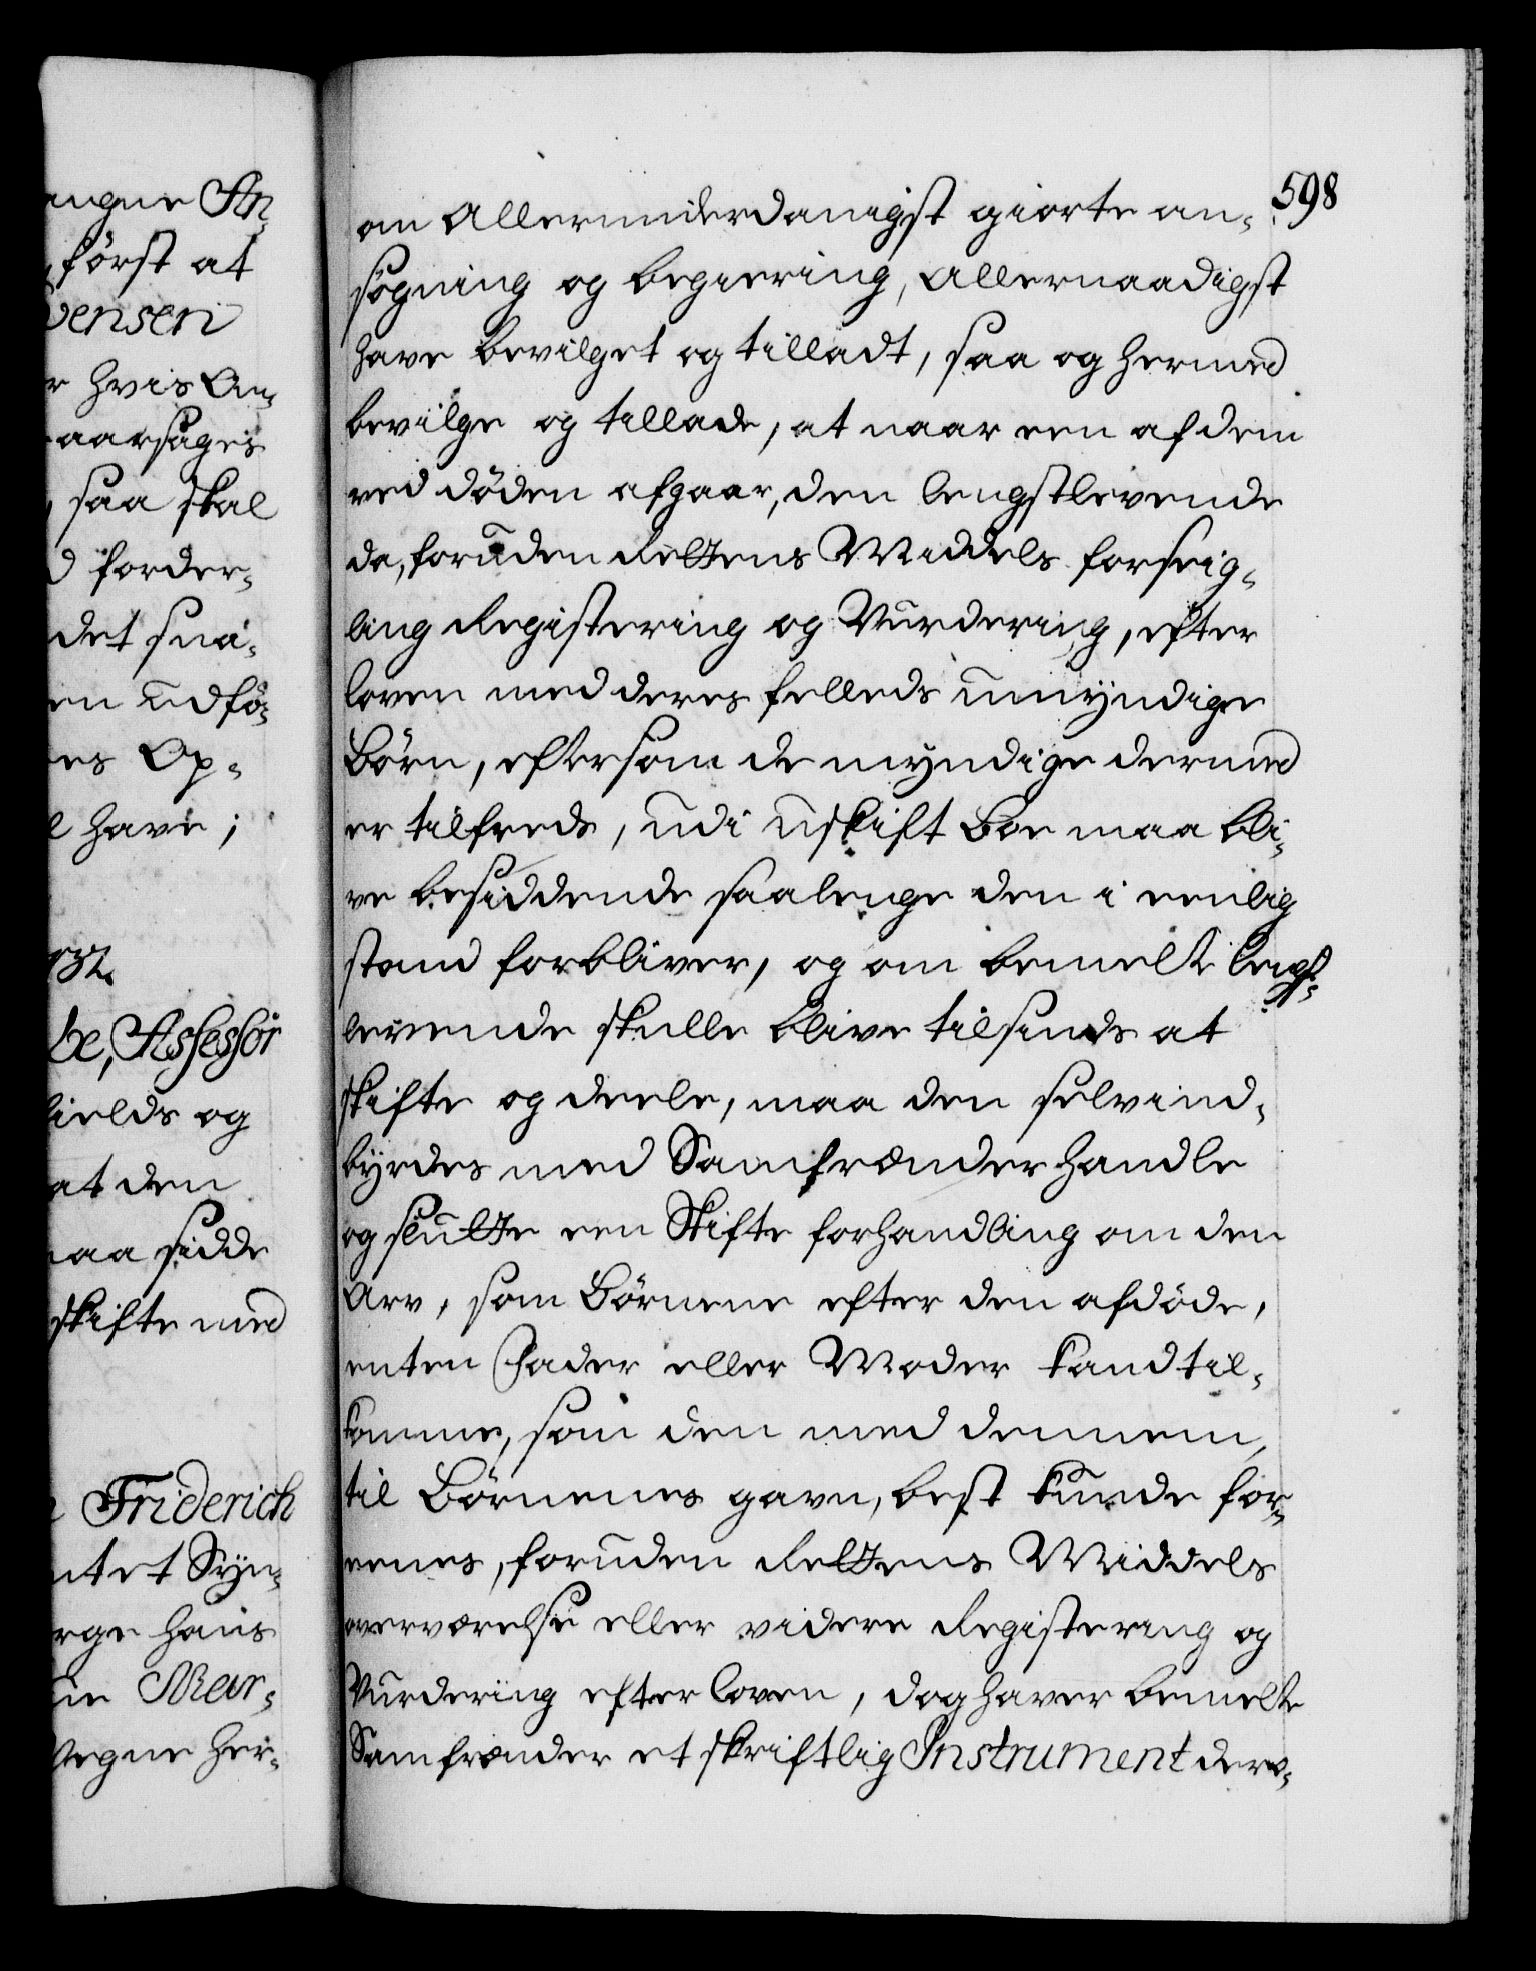 angne An-
först at
vensen
r hvis An-
aarsages
, saa skal
d forder-
det sna-
en udfö-
es Op-
l have;
732.
be, Assessör
fields og
at den
aa sidde
skifte med
Friderich
ntet Syn-
rge hans
ne Mar-
Vegne her-
598
om allerunderdanigst giorte an-
søgning og begiering, allernaadigst
have bevilget og tilladt, saa og hermed
bevilge og tillade, at naar een af dem
ved døden afgaar, den lengstlevende
da, foruden Rettens Middels forseig-
ling Registering og Vurdering, efter
loven med deres felleds umyndige
Börn, eftersom de myndige dermed
er tilfreds, udi uskift Boe maa bli-
ve besiddende saalenge den i eenlig
stand forbliver, og om bemelte lengst-
levende skulle blive tilsinds at
skifte og deele, maa den selv ind-
byrdes med Samfrænder handle
og slutte een Skifte forhandling om den
Arv, som Börnene efter den afdöde,
enten Fader eller Moder kand til-
komme, som den med dennem,
til Börnenes gavn, best kunde for-
eenes, foruden Rettens Middels
overværelse eller videre Registering og
Vurdering efter loven, dog haver bemelte
Samfrænder et skriftlig Instrument dero-